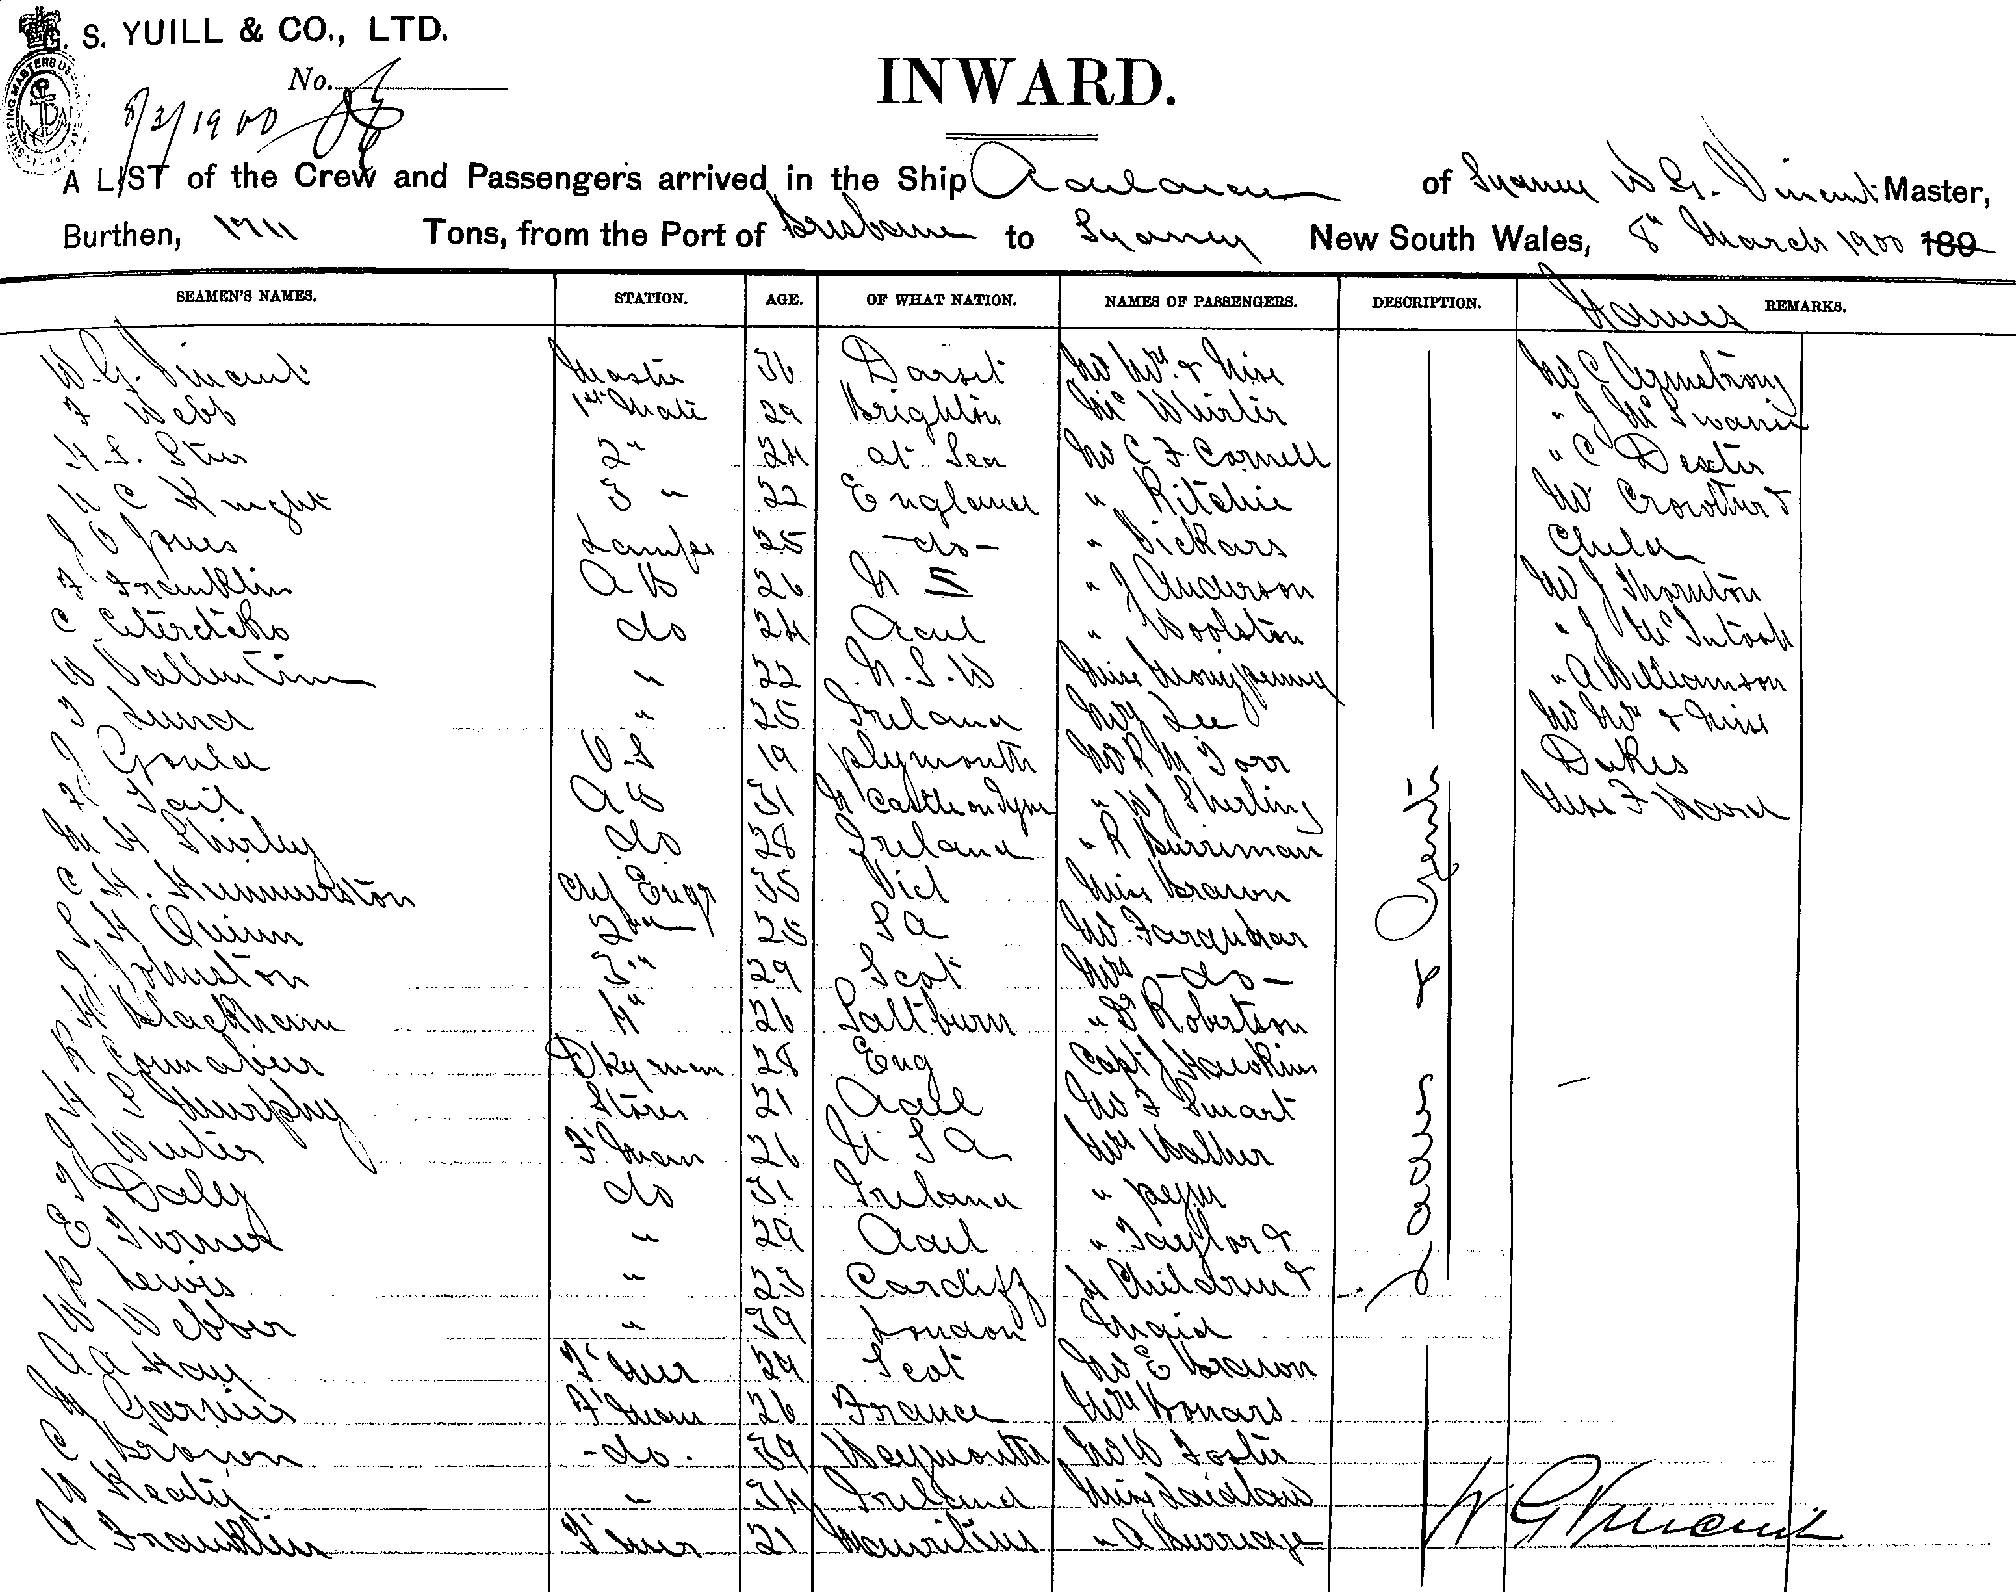 G. S. YUILL & CO., LTD.
No.
8/3/1900
INWARD.
A LIST of the Crew and Passengers arrived in the Ship Aarlaraca of Sydney W G. Vincent Master,
Burthen, 1711 Tons, from the Port of Brisbane to Sydney New South Wales, 8th March 1900 189
SEAMEN'S NAMES. STATION. AGE. OF WHAT NATION. NAMES OF PASSENGERS. DESCRIPTION. Names REMARKS.
W. G. Vincent Master 36 Dorset Mr Mrs & Miss Mr C Armstrong
F Webb 1st Mate 29 Brighton McWhirter " J McSwain
H. S. 2" 24 at Sea Mr C F Cornell " C Dexter
N C Knight 3 " 22 England " Ritchie Mr Crowther &
J O Jones Lamps 25 -do- " Vickars Child
F Franklin A B 26 N S " J Anderson Mr J Thornton
C do 24 Adel " Woolston " J McIntosh
W Vallentine " 22 N.S.W Miss Monypenny " A Williamson
T Lund " 25 Ireland Mr Y Lee Mr Mrs & Miss
J Gould O.S 19 Plymouth Mr R M Torr Dukes
F Tait A B 31 N Castle on Tyne " W J Sherling Miss F Ward
M H Shirley do 28 Ireland " R Burriman
C H. Hummerston Chf Engr 35 Vict Miss Brown
S H Quinn 2nd 25 S A Mr Farquhar
J. Johnston 3" 29 Scot Mrs -do-
H Blackham 4" 26 Saltburn " Robertson
R Connabeer Dkyman 28 Eng Capt J Hawkins
H S Murphy Stores 21 Adel Mr F Smart
J Winter F'man 26 U S A Mrs Walker
T Daley do 31 Ireland "
E Turner " 29 Adel " Taylor &
R Lewis " 23 Cardiff 4 Children &
W Webber " 39 London Maid
A A Hay T'mer 29 Scot Mr E Brown
M Garnier F'man 26 France Mrs Bonars
C Brown -do. 39 Weymouth Mr W Foster
W Keaty " 34 Ireland Miss Laidlaw
A Franklin T'mer 21 Mauritius " A Burridge
Ladies & Gents
W G Vincent